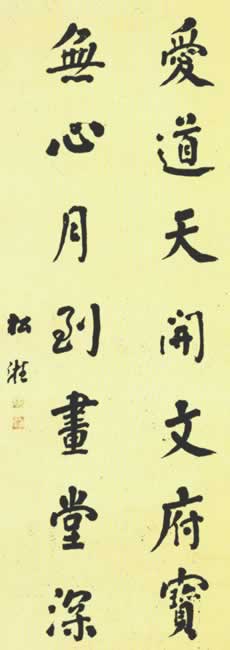 愛道天開文府寶
無心月到畫堂深
松湰